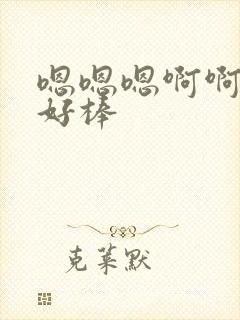 嗯嗯嗯啊啊
好棒
克莱默